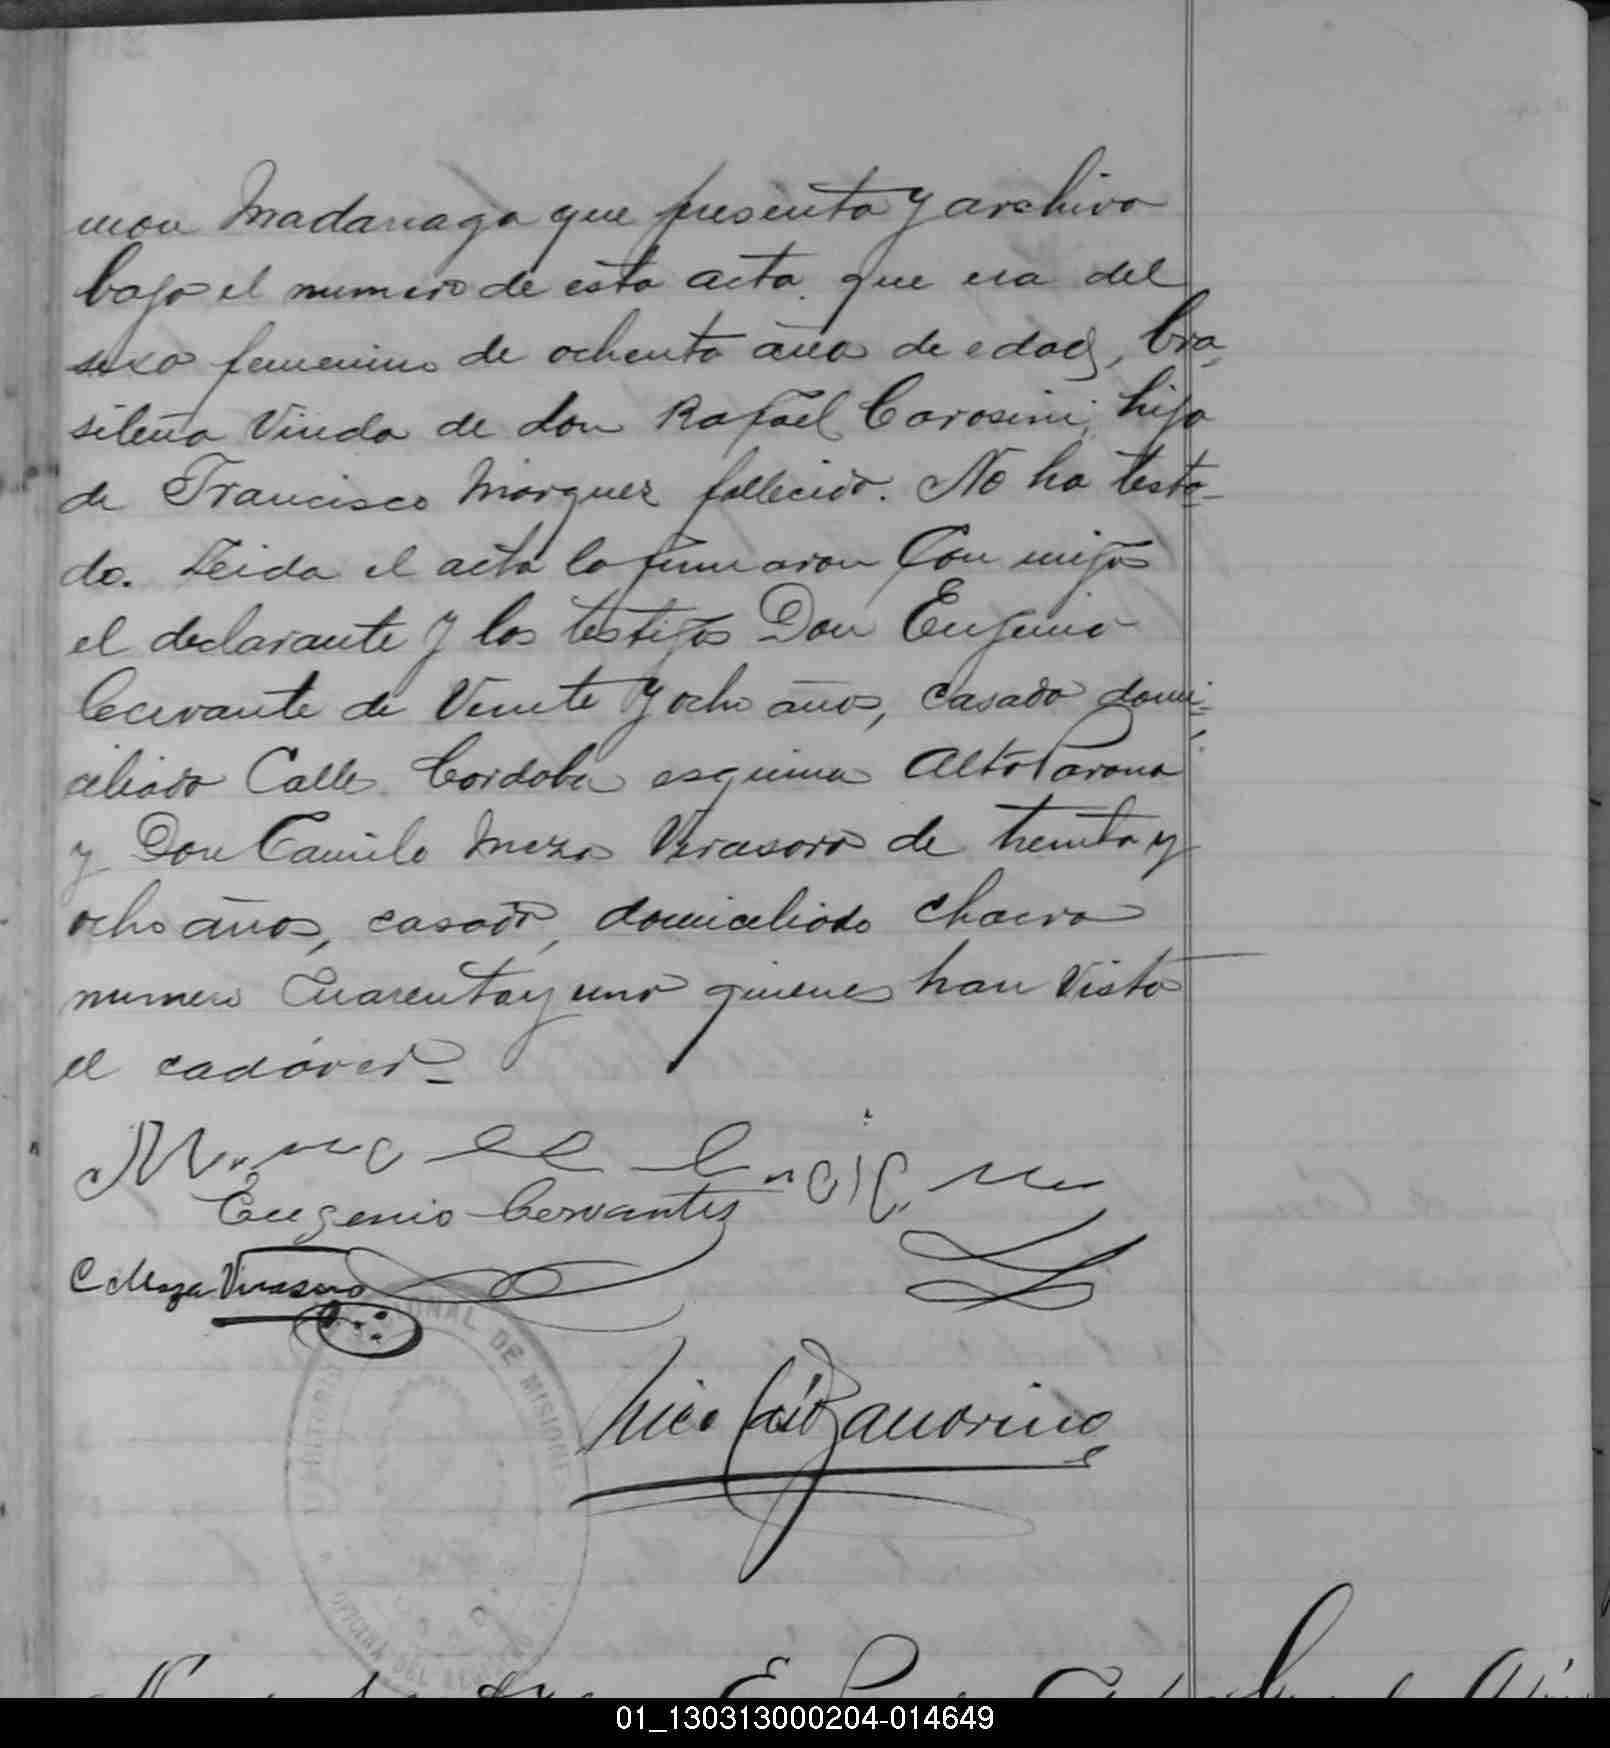 mon Madariaga que presenta y archivo
bajo el numero de esta acta. que era del
sexo femenino de ochenta años de edad, bra-
sileña Viuda de don Rafael Carosini; hija
de Francisco Márquez fallecido. No ha testa-
do. Leida el acta la firmaron Con migo
el declarante y los testigos Don Eugenio
Cervante de Veinte y ocho años, casado domi-
ciliado Calle Cordoba esquina Alto Parana
y Don Camilo Meza Virasoro de treinta y
ocho años, casado, domiciliado chacra
numero Cuarenta y uno quienes han Visto
el cadáver_
Eugenio Cervantes
C Meza Virasoro
NAL DE MISIONES
OFICINA DEL
01_130313000204-014649